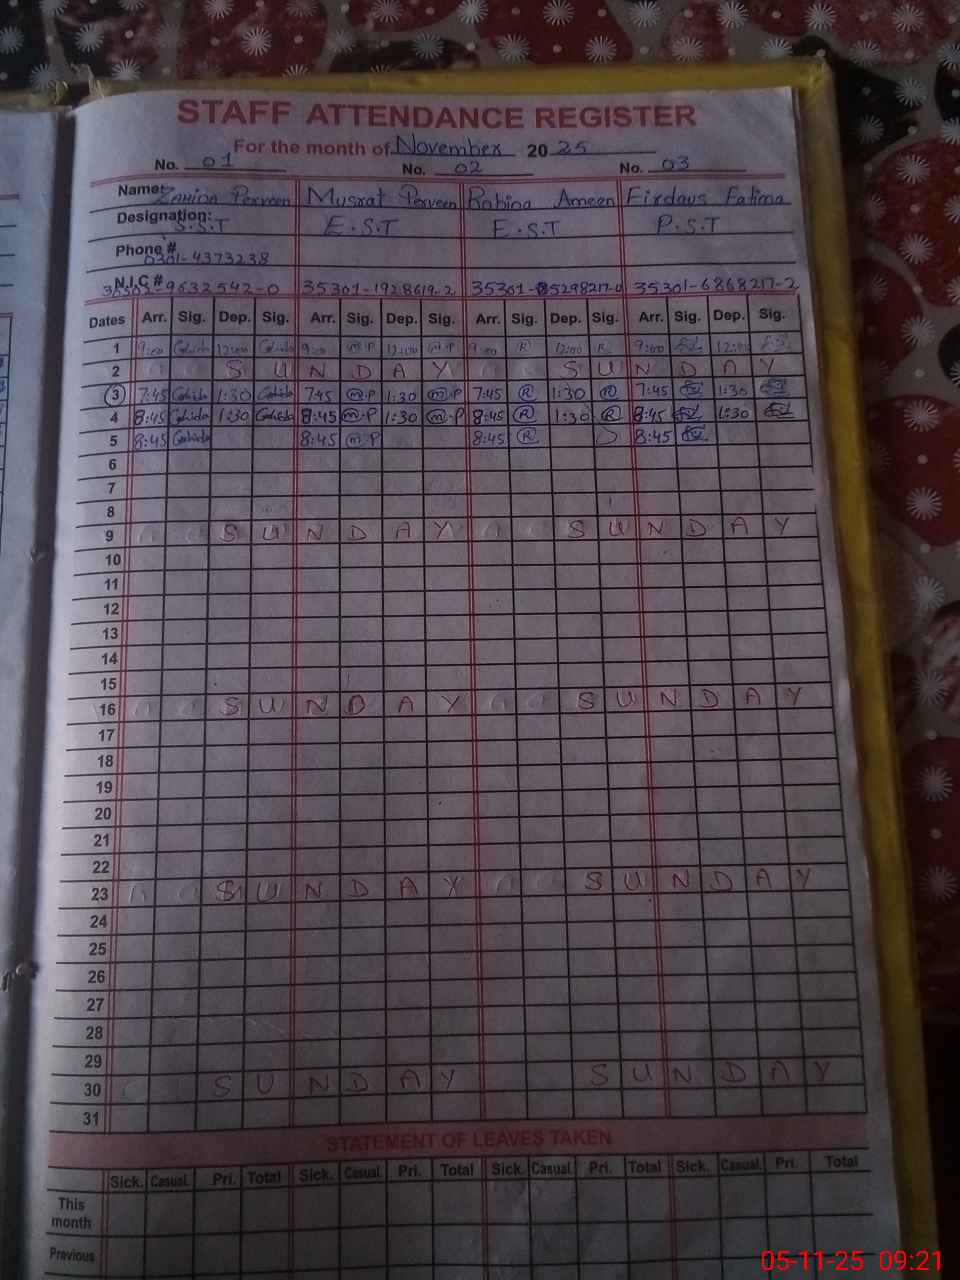 STAFF ATTENDANCE REGISTER
For the month of November 2025
No. 01 No. 02 No. 03
Name: Perveen Musrat Perveen Rabina Ameen Firdaus Fatima
Designation: S.S.T E.S.T E.S.T P.S.T
Phone # 0301-4373238
N.I.C # 35301-1928619-2 35301-6868217-2
Dates Arr. Sig. Dep. Sig. Arr. Sig. Dep. Sig. Arr. Sig. Dep. Sig. Arr. Sig. Dep. Sig.
1 9:00 12:00 9:00 m.P 12:00 m.P 9:00 R 12:00 R 9:00 12:00
2 SUNDAY SUNDAY
3 7:45 1:30 7:45 m.P 1:30 m.P 7:45 R 1:30 R 7:45 1:30
4 8:45 1:30 8:45 m.P 1:30 m.P 8:45 R 1:30 R 8:45 1:30
5 8:45 8:45 m.P 8:45 R 8:45
6
7
8
9 SUNDAY SUNDAY
10
11
12
13
14
15
16 SUNDAY SUNDAY
17
18
19
20
21
22
23 SUNDAY SUNDAY
24
25
26
27
28
29
30 SUNDAY SUNDAY
31
STATEMENT OF LEAVES TAKEN
Sick. Casual. Pri. Total Sick. Casual. Pri. Total Sick. Casual. Pri. Total Sick. Casual. Pri. Total
This
month
Previous
05-11-25 09:21